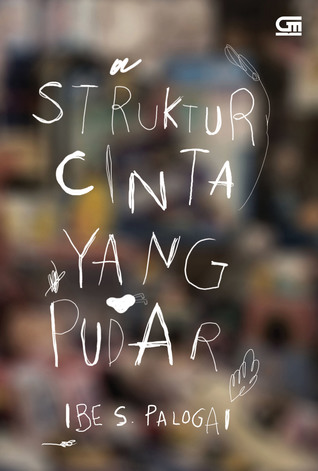 GM
STRUKTUR
CINTA
YANG
PUDAR
IBE S. PALOGAI